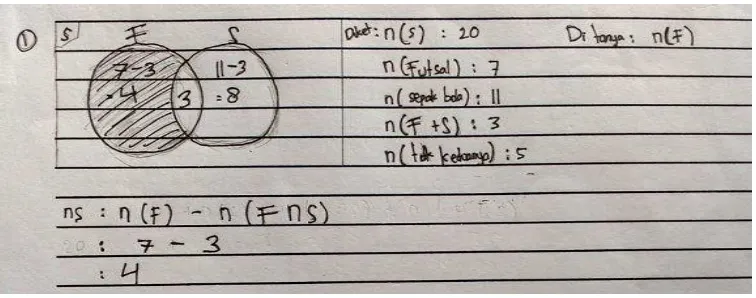 ① S F S
7-3 11-3
= 4 3 = 8
Diket: n(S) : 20 Ditanya: n(F)
n(Futsal) : 7
n(sepak bola) : 11
n(F+S) : 3
n(tdk keduanya) : 5
ns : n(F) - n(F∩S)
: 7 - 3
: 4